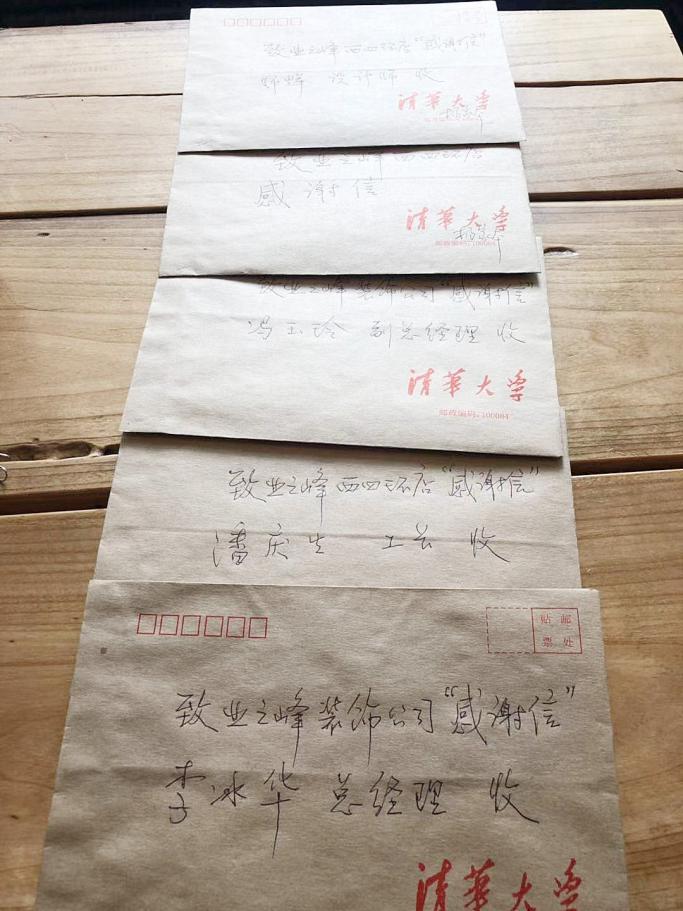 致业之峰西四环店“感谢信”
设计师 收
清华大学
致业之峰西四环店
感谢信
清华大学
邮政编码:100084
致业之峰装饰公司“感谢信”
冯玉玲 副总经理 收
清华大学
邮政编码:100084
致业之峰西四环店“感谢信”
潘庆生 工长 收
贴邮
票处
致业之峰装饰公司“感谢信”
李冰华 总经理 收
清华大学